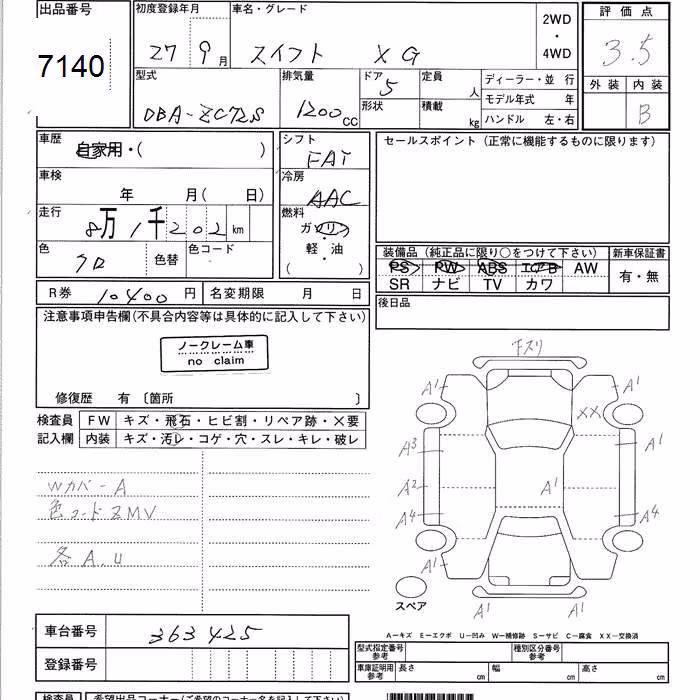 出品番号 初度登録年月 車名・グレード 2WD・4WD 評価点
7140 27 9月 スイフト XG 3.5
型式 排気量 ドア 定員 人 ディーラー・並行 外装 内装
DBA-ZC72S 1200 CC 5 形状 積載 kg モデル年式 年 B
ハンドル 左・右
車歴 自家用・( ) シフト FAT セールスポイント (正常に機能するものに限ります)
車検 年 月( 日) 冷房 AAC
走行 8万1千202km 燃料 ガソリン・軽・油 ( )
色 クロ 色替 色コード 装備品 (純正品に限り○をつけて下さい) 新車保証書
PS PW ABS エアB AW 有・無
SR ナビ TV カワ
R券 10400円 名変期限 月 日 後日品
注意事項申告欄(不具合内容等は具体的に記入して下さい)
ノークレーム車
no claim
修復歴 有 〔箇所 〕
検査員 FW キズ・飛石・ヒビ割・リペア跡・×要
記入欄 内装 キズ・汚レ・コゲ・穴・スレ・キレ・破レ
Wカバー A
色コード ZMV
各A.U
下スリ
A1 A1
XX
A3 A1
A2 A1
A4 A4
A1 A1
A1 A1
スペア
A-キズ E-エクボ U-凹み W-補修跡 S-サビ C-腐食 XX-交換済
車台番号 363425 型式指定番号 参考 種別区分番号 参考
登録番号 車庫証明用 参考 長さ cm 幅 cm 高さ cm
検査員 希望出品コーナー(ご希望のコーナー名を記入して下さい)